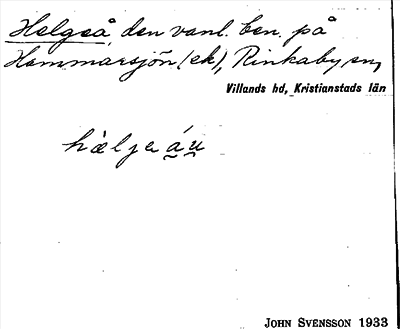 Helgeå, den vanl. ben. på
Hammarsjön (ek), Rinkaby sn,
Villands hd, Kristianstads län
hæljeáu
JOHN SVENSSON 1933